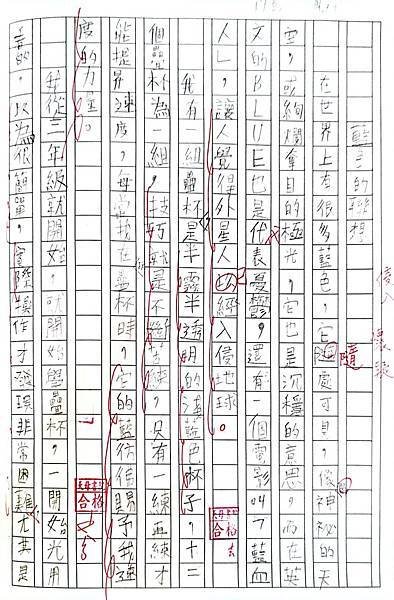 藍色的聯想
在世界上有很多藍色，它隨處可見，像神祕的天
空，或絢爛奪目的極光，它也是沉穩的意思，而在英
文的BLUE也是代表憂鬱，還有一個電影叫藍血
人，讓人覺得外星人已經入侵地球。
我有一組疊杯是半霧半透明的海藍色杯子，十二
個疊杯為一組，技巧就是不斷打練，只有一練再練才
能提昇速度，每當我在疊杯時，它的藍彷彿賜予我速
度的力量。
我從三年級就開始，就開始學疊杯，一開始光用
看的，以為很簡單，實際操作才發現非常困難尤其是
隨
侵入
合格
合格